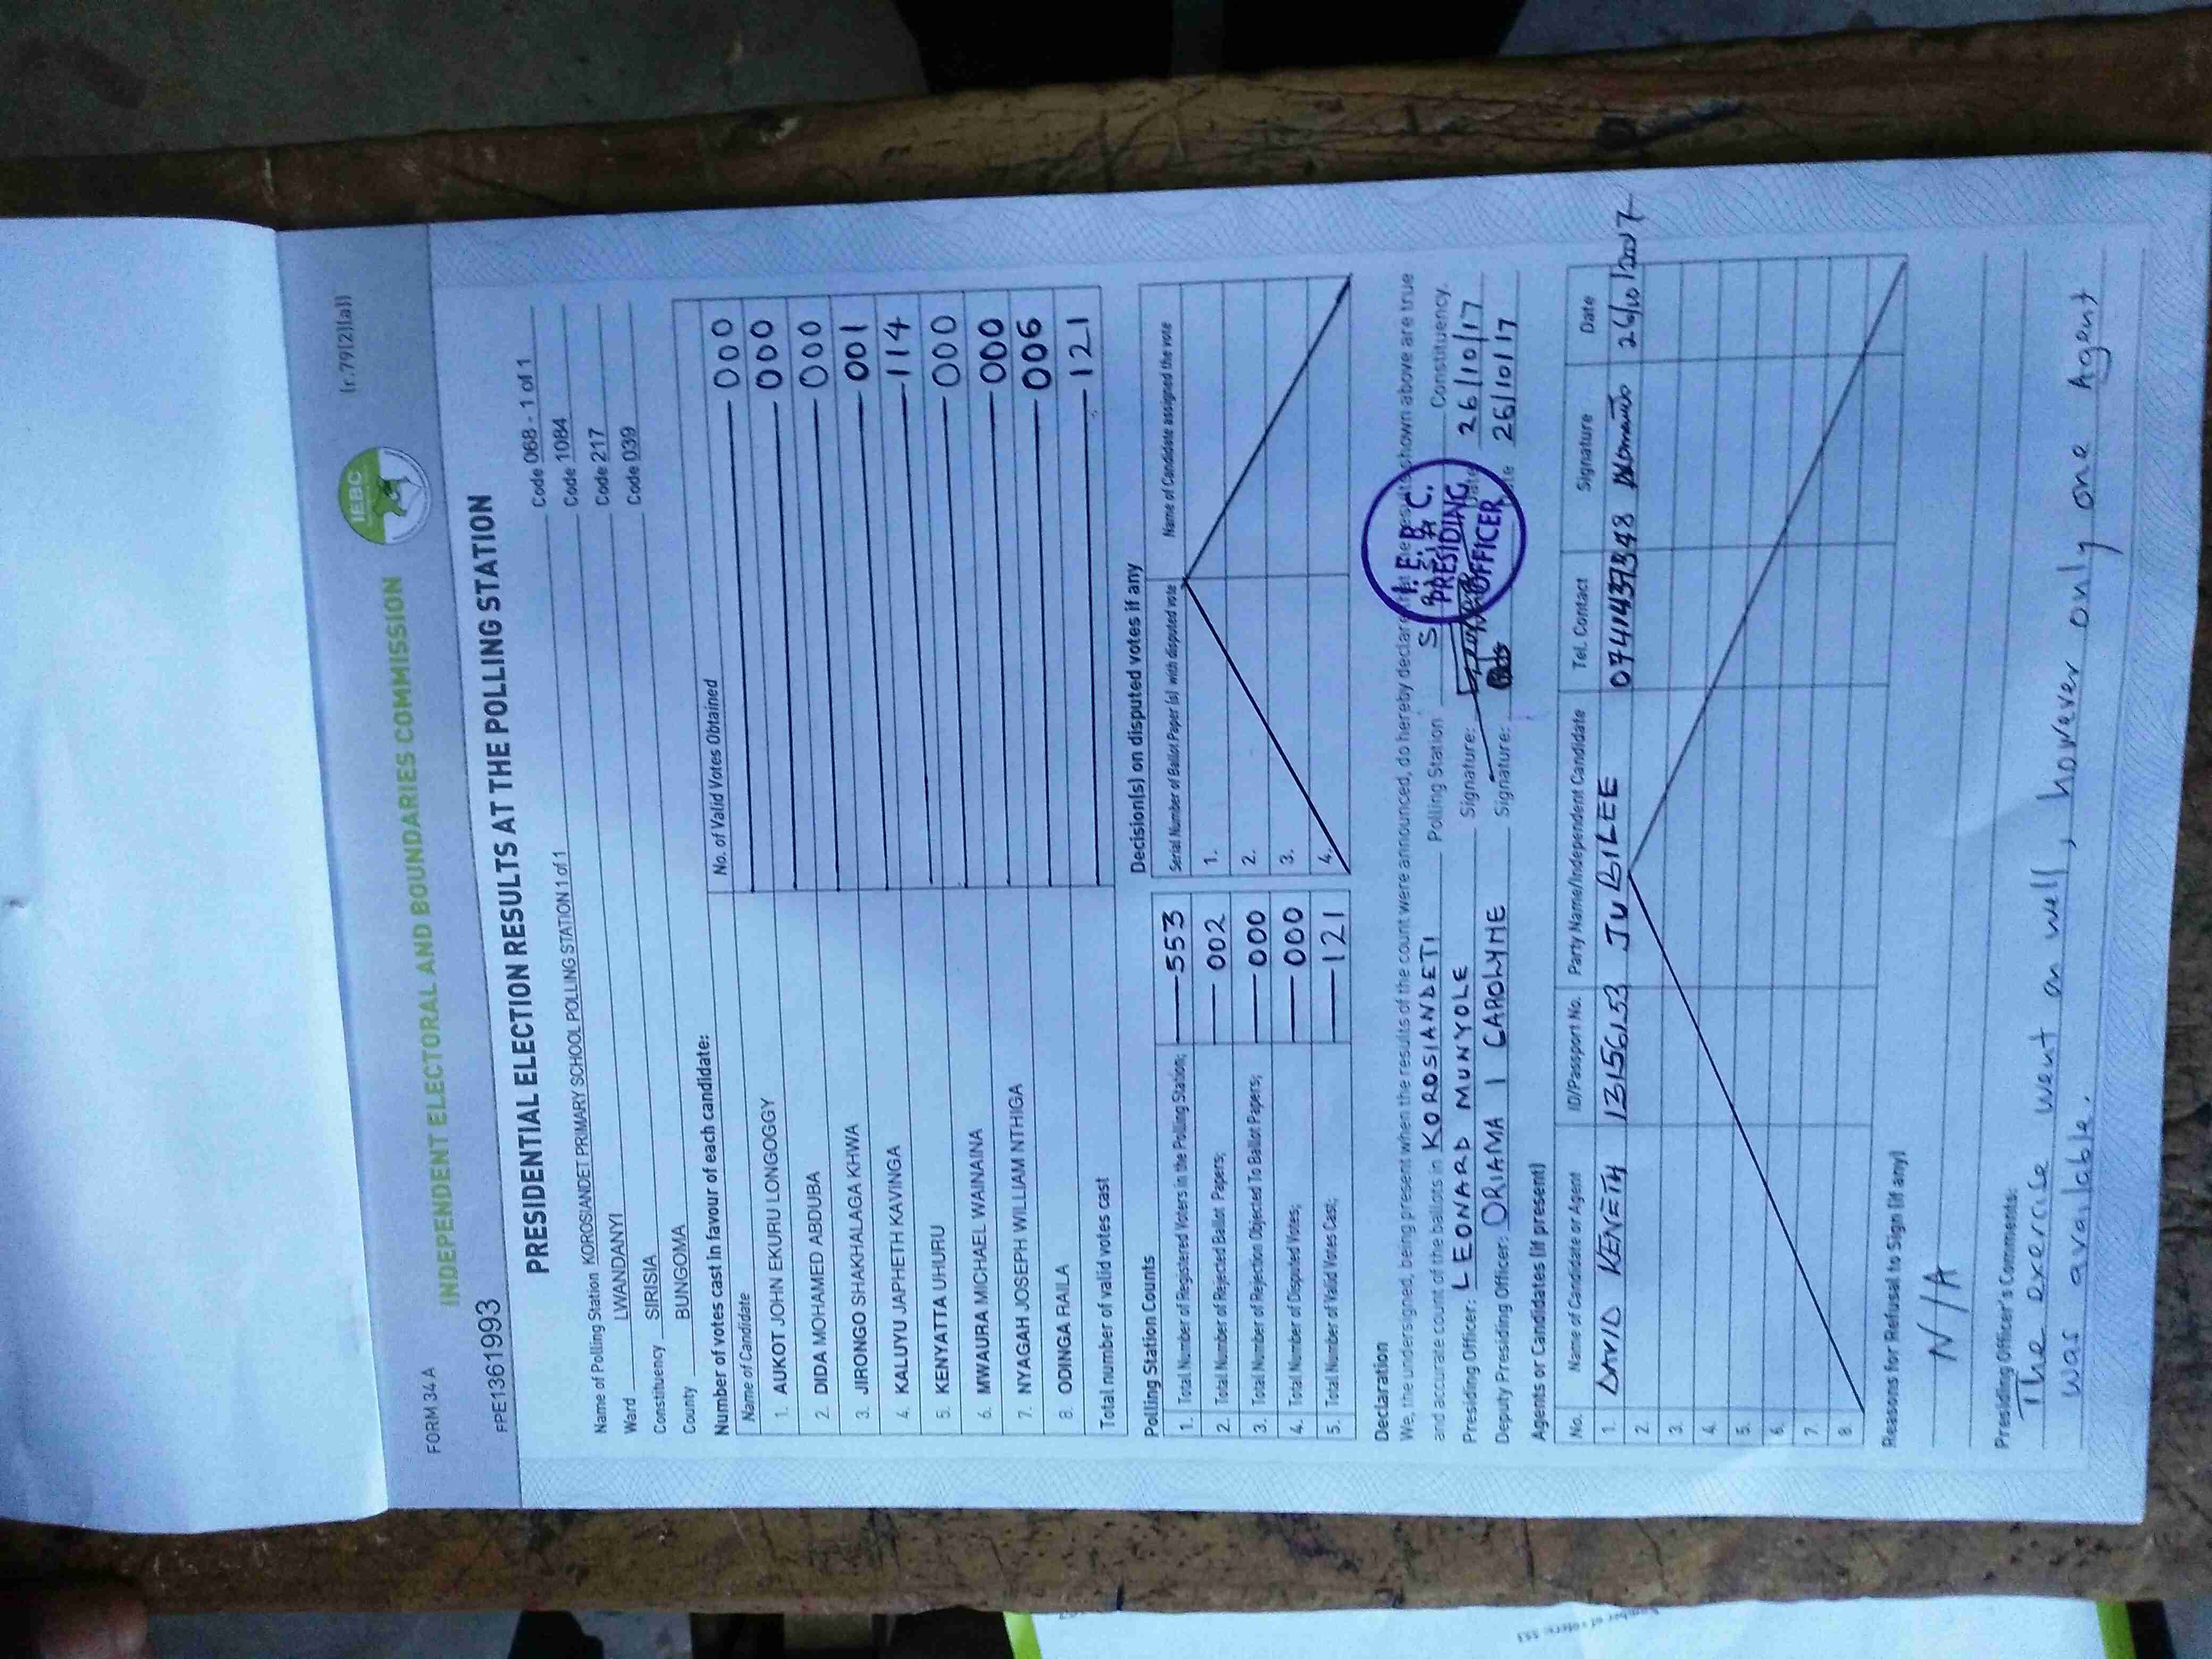 FORM 34 A
(r.79(2)(a))
INDEPENDENT ELECTORAL AND BOUNDARIES COMMISSION
IEBC
FPE1361993
PRESIDENTIAL ELECTION RESULTS AT THE POLLING STATION
Name of Polling Station KOROSIANDET PRIMARY SCHOOL POLLING STATION 1 of 1 Code 068 - 1 of 1
Ward LWANDANYI Code 1084
Constituency SIRISIA Code 217
County BUNGOMA Code 039
Number of votes cast in favour of each candidate:
Name of Candidate No. of Valid Votes Obtained
1. AUKOT JOHN EKURU LONGOGGY 000
2. DIDA MOHAMED ABDUBA 000
3. JIRONGO SHAKHALAGA KHWA 000
4. KALUYU JAPHETH KAVINGA 001
5. KENYATTA UHURU 114
6. MWAURA MICHAEL WAINAINA 000
7. NYAGAH JOSEPH WILLIAM NTHIGA 000
8. ODINGA RAILA 006
Total number of valid votes cast 121
Polling Station Counts
1. Total Number of Registered Voters in the Polling Station; 553
2. Total Number of Rejected Ballot Papers; 002
3. Total Number of Rejection Objected To Ballot Papers; 000
4. Total Number of Disputed Votes; 000
5. Total Number of Valid Votes Cast; 121
Decision(s) on disputed votes if any
Serial Number of Ballot Paper (s) with disputed vote Name of Candidate assigned the vote
1.
2.
3.
4.
Declaration
We, the undersigned, being present when the results of the count were announced, do hereby declare shown above are true
and accurate count of the ballots in KOROSIANDETI Polling Station Constituency.
Presiding Officer: LEONARD MUNYOLE Signature: 26/10/17
Deputy Presiding Officer: ORIAMA I CAROLYNE Signature: 26/10/17
I.E.B.C.
PRESIDING
OFFICER
Agents or Candidates (if present)
No. Name of Candidate or Agent ID/Passport No. Party Name/Independent Candidate Tel. Contact Signature Date
1. DAVID KENETH 13156153 JUBILEE 26/10/2017
2.
3.
4.
5.
6.
7.
8.
Reasons for Refusal to Sign (if any)
N/A
Presiding Officer's Comments:
The exercise went on well, however only one Agent
was available.
Number of voters: 553